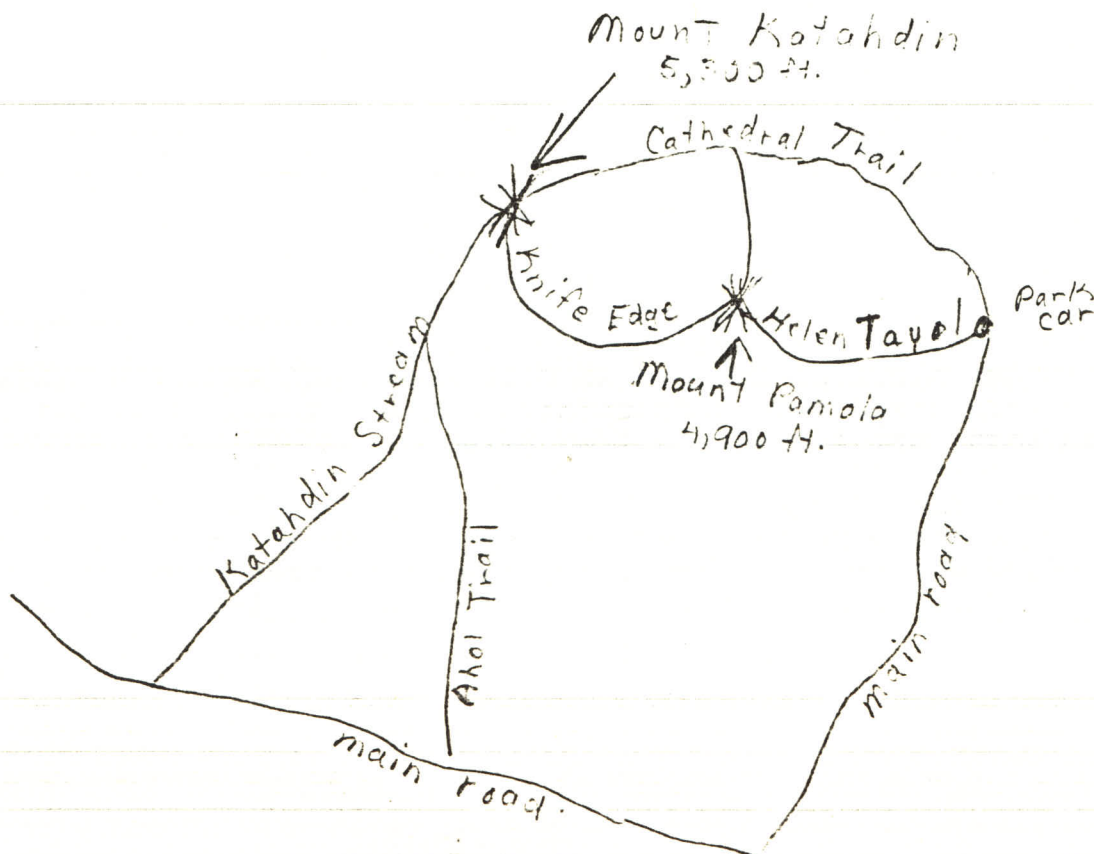 Mount Katahdin
5,300 ft.
Cathedral Trail
Knife Edge
Helen Taylo
Park
car
Mount Pamola
4,900 ft.
Katahdin Stream
Ahol Trail
main road
main road.